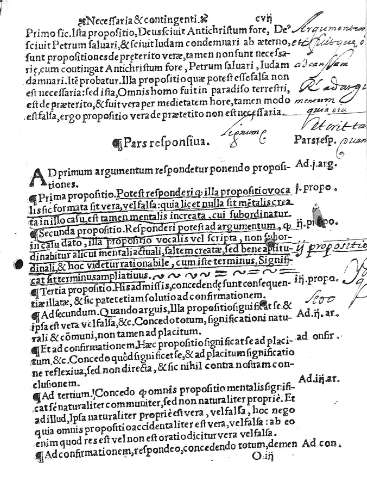 Necessaria & contingenti. cvij
Primo sic. Ista propositio, Deus sciuit Antichristum fore, De⸗
sciuit Petrum saluari, & sciuit Iudam condemnari ab æterno,
sunt propositiones de præterito veræ, tamen non sunt necessa⸗
riæ, cum contingat Antichristum fore, Petrum saluari, Iudam
damnari. Itē probatur. Illa propositio quæ potest esse falsa non
est necessaria: sed ista, Omnis homo fuit in paradiso terrestri,
est de præterito, & fuit vera per medietatem horæ, tamen modo
est falsa, ergo propositio vera de præterito non est necessaria.
¶Pars responsiua. Pars resp.
AD primum argumentum respondetur ponendo proposi⸗ Ad.j.arg.
tiones.
¶Prima propositio. Potest responderi ꝙ illa propositio voca j. propo.
lis sic formata sit vera, vel falsa: qua licet nulla sit mētalis crea
ta in illo casu, est tamen mentalis increata, cui subordinatur.
¶Secunda propositio. Responderi potest ad argumentum, ꝙ ij. propo.
in casu dato, illa propositio vocalis vel scripta, non subor⸗
dinabitur alicui mentali actuali, saltem creatæ, sed bene aptitu⸗
dinali, & hoc videtur rationabile, cum iste terminus, Signifi⸗
cat sit terminus ampliatiuus.
¶Tertia propositio. His admissis, concedendæ sunt consequen⸗ iij. propo.
tiæ illatæ, & sic patet etiam solutio ad confirmationem.
¶Ad secundum. Quando arguis, Illa propositio significat se & Ad.ij.ar.
ipsa est vera vel falsa, &c. Concedo totum, significationi natu⸗
rali & cōmuni, non tamen ad placitum.
¶Et ad confirmationem. Hæc propositio significat se ad placi⸗ ad onfir.
tum, &c. Concedo quòd significat se, & ad placitum significatio
ne reflexiua, sed non directa, & sic nihil contra nostram con⸗
clusionem.
¶Ad tertium. Concedo ꝙ omnis propositio mentalis signifi⸗ Ad.iij.ar.
cat se naturaliter communiter, sed non naturaliter propriè. Et
ad illud, Ipsa naturaliter propriè est vera, vel falsa, hoc nego
quia omnis propositio accidentaliter est vera, vel falsa: ab eo
enim quod res est vel non est oratio dicitur vera vel falsa.
¶Ad confirmationem, respondeo, concedendo totum, demen Ad con.
O.iij